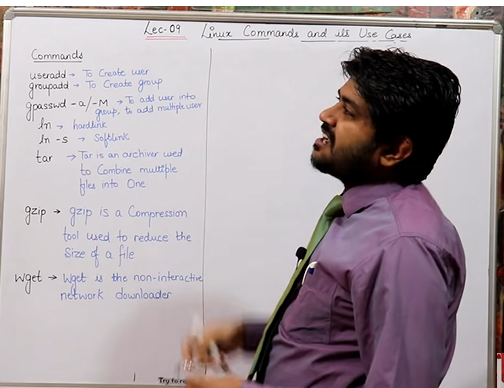 Lec-09 Linux Commands and its Use Cases
Commands
useradd → To Create user
groupadd → To Create group
gpasswd -a/-M → To add user into
group, to add multiple user
ln → hardlink
ln -s → Softlink
tar → Tar is an archiver used
to Combine multiple
files into One
gzip → gzip is a Compression
tool used to reduce the
Size of a file
wget → Wget is the non-interactive
network downloader